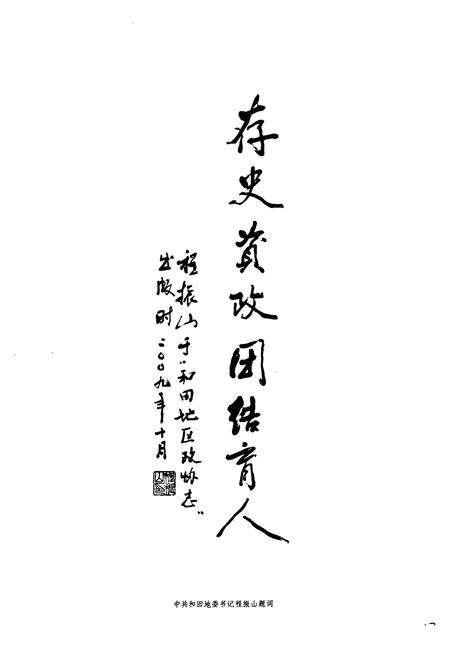 存史资政团结育人
程振山于“和田地区政协志”
出版时二〇〇九年十月
中共和田地委书记程振山题词